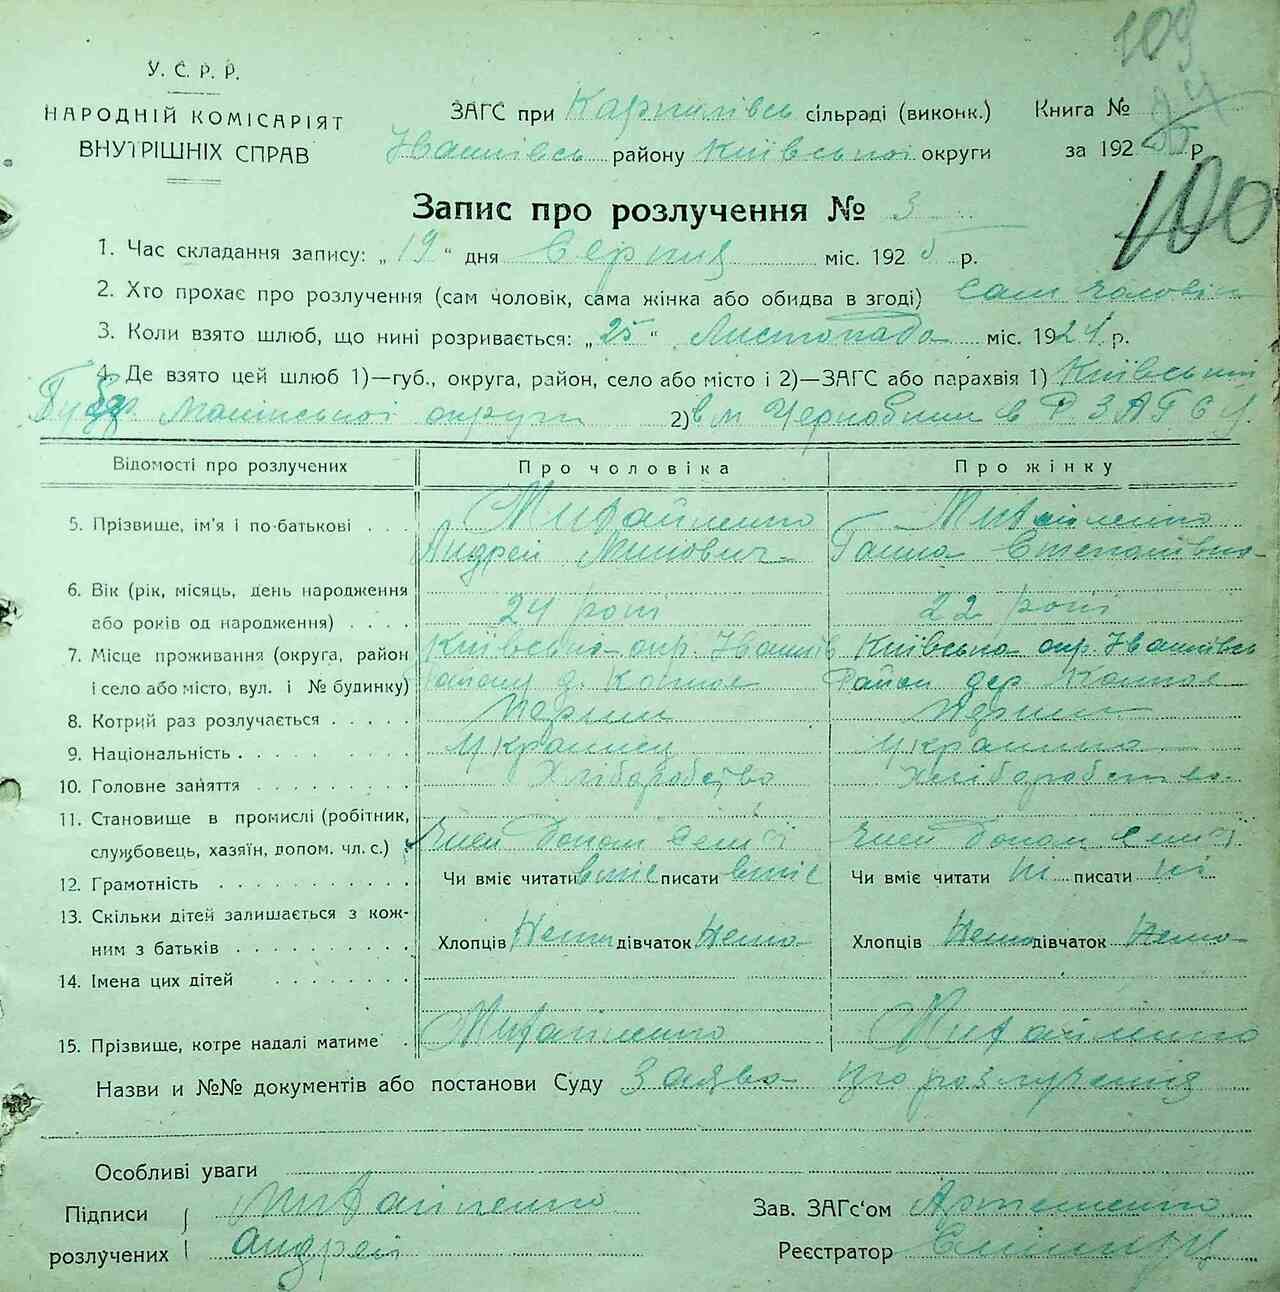 109
У. С. Р. Р.
НАРОДНІЙ КОМІСАРІЯТ
ВНУТРІШНІХ СПРАВ
ЗАГС при Карпилівсь сільраді (виконк.) Книга №
Іванківсь району Київської округи за 192 р
100
Запис про розлучення № 3
1. Час складання запису: „19“ дня Серпня міс. 1925 р.
2. Хто прохає про розлучення (сам чоловік, сама жінка або обидва в згоді) Сам чоловік
3. Коли взято шлюб, що нині розривається: „25“ Листопада міс. 1924 р.
4. Де взято цей шлюб 1)—губ., округа, район, село або місто і 2)—ЗАГС або парахвія 1) Київський
округи 2) в м Чернобиля в РЗАГСУ
Відомості про розлучених Про чоловіка Про жінку
5. Прізвище, ім'я і по-батькові . . . Михайленко Михайленко
Андрей Минович Ганна Степанівна
6. Вік (рік, місяць, день народження
або років од народження) . . . . 24 рокі 22 рокі
7. Місце проживання (округа, район Київська окр. Іванків Київська окр. Іванківсь
і село або місто, вул. і № будинку) району д. Район дер
8. Котрий раз розлучається . . . . . Перший Перший
9. Національність . . . . . . . . . Українець Українка
10. Головне заняття . . . . . . . . Хліборобство Хліборобство
11. Становище в промислі (робітник,
службовець, хазяїн, допом. чл. с.) Член допом семїї Член допом семїї
12. Грамотність . . . . . . . . . . Чи вміє читати вміє писати вміє Чи вміє читати ні писати ні
13. Скільки дітей залишається з кож-
ним з батьків . . . . . . . . . Хлопців Нема дівчаток Нема Хлопців Нема дівчаток Нема
14. Імена цих дітей . . . . . . . .
15. Прізвище, котре надалі матиме . Михайленко Михайленко
Назви и №№ документів або постанови Суду Заява про розлучення
Особливі уваги
Підписи Михайленко Зав. ЗАГс'ом Артеменко
розлучених Андрей Реєстратор